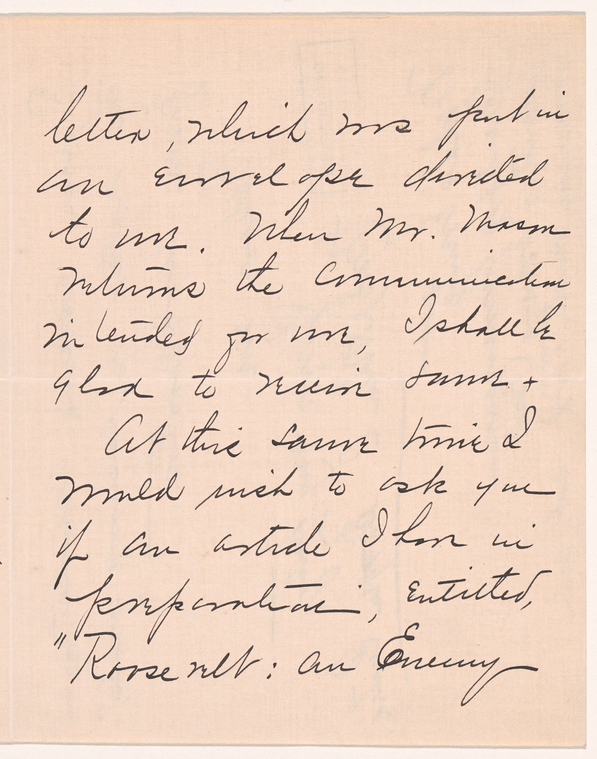 letter, which was put in
an envelope directed
to me. When Mr. Mason
returns the communication
intended for me, I shall be
glad to receive same +
At this same time I
would wish to ask you
if an article I have in
preparation, entitled,
"Roosevelt: an Enemy